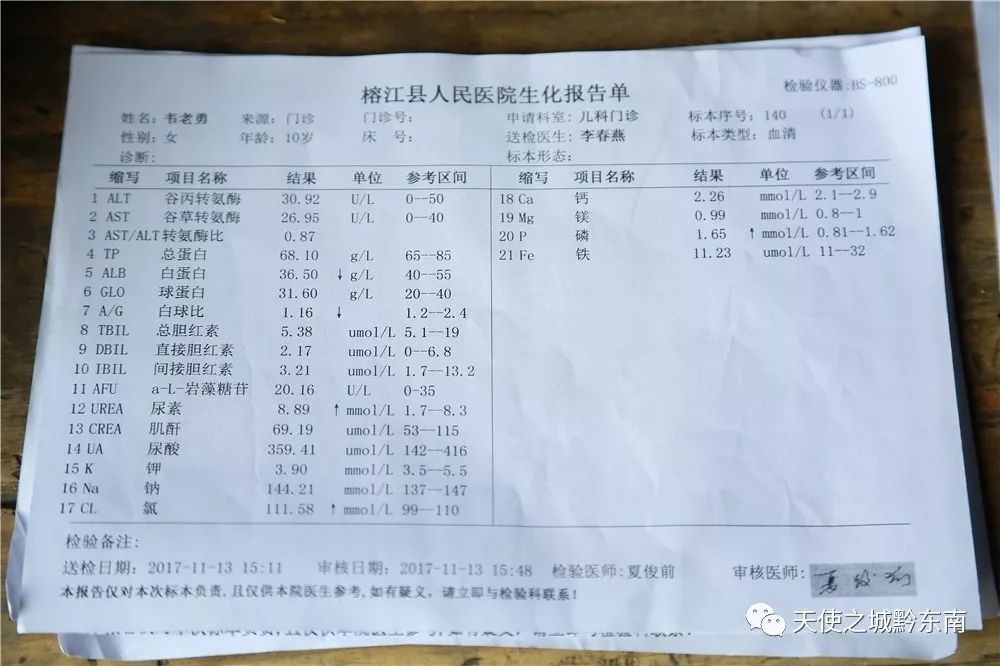 榕江县人民医院生化报告单
检验仪器:BS-800
姓名：韦老勇 来源：门诊 门诊号： 申请科室：儿科门诊 标本序号：140 (1/1)
性别：女 年龄：10岁 床 号： 送检医生：李春燕 标本类型：血清
诊断： 标本形态：
缩写 项目名称 结果 单位 参考区间 缩写 项目名称 结果 单位 参考区间
1 ALT 谷丙转氨酶 30.92 U/L 0--50 18 Ca 钙 2.26 mmol/L 2.1--2.9
2 AST 谷草转氨酶 26.95 U/L 0--40 19 Mg 镁 0.99 mmol/L 0.8--1
3 AST/ALT 转氨酶比 0.87 20 P 磷 1.65 ↑ mmol/L 0.81--1.62
4 TP 总蛋白 68.10 g/L 65--85 21 Fe 铁 11.23 umol/L 11--32
5 ALB 白蛋白 36.50 ↓ g/L 40--55
6 GLO 球蛋白 31.60 g/L 20--40
7 A/G 白球比 1.16 ↓ 1.2--2.4
8 TBIL 总胆红素 5.38 umol/L 5.1--19
9 DBIL 直接胆红素 2.17 umol/L 0--6.8
10 IBIL 间接胆红素 3.21 umol/L 1.7--13.2
11 AFU a-L-岩藻糖苷 20.16 U/L 0-35
12 UREA 尿素 8.89 ↑ mmol/L 1.7--8.3
13 CREA 肌酐 69.19 umol/L 53--115
14 UA 尿酸 359.41 umol/L 142--416
15 K 钾 3.90 mmol/L 3.5--5.5
16 Na 钠 144.21 mmol/L 137--147
17 CL 氯 111.58 ↑ mmol/L 99--110
检验备注:
送检日期：2017-11-13 15:11 审核日期：2017-11-13 15:48 检验医师:夏俊前 审核医师:
本报告仅对本次标本负责,且仅供本院医生参考,如有疑义，请立即与检验科联系！
天使之城黔东南